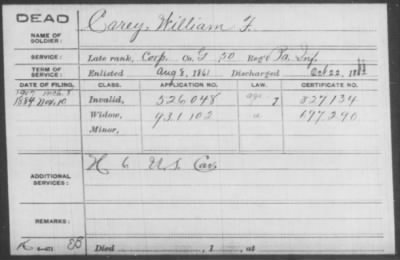 DEAD
NAME OF SOLDIER:
Carey, William F.
SERVICE:
Late rank, Corp. Co. G 50 Reg't Pa. Inf.
TERM OF SERVICE:
Enlisted Aug 3, 1861 Discharged Oct 22,
DATE OF FILING. CLASS. APPLICATION NO. LAW. CERTIFICATE NO.
1889 Nov. 10 Invalid, 526048 827134
Widow, 931102 677290
Minor,
ADDITIONAL SERVICES:
H 6 U.S. Cav
REMARKS:
Died , 1 , at